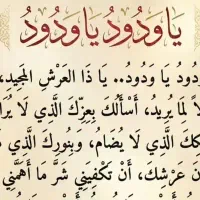 يَا وَدُودُ يَا وَدُودُ
دُودُ يَا وَدُودُ.. يَا ذَا العَرْشِ المَجِيدِ،
لِمَا يُرِيدُ، أَسْأَلُكَ بِعِزِّكَ الَّذِي لَا
الَّذِي لَا يُضَامُ، وَبِنُورِكَ الَّذِي
عَرْشِكَ، أَنْ تَكْفِيَنِي شَرَّ مَا أَهَمَّنِي